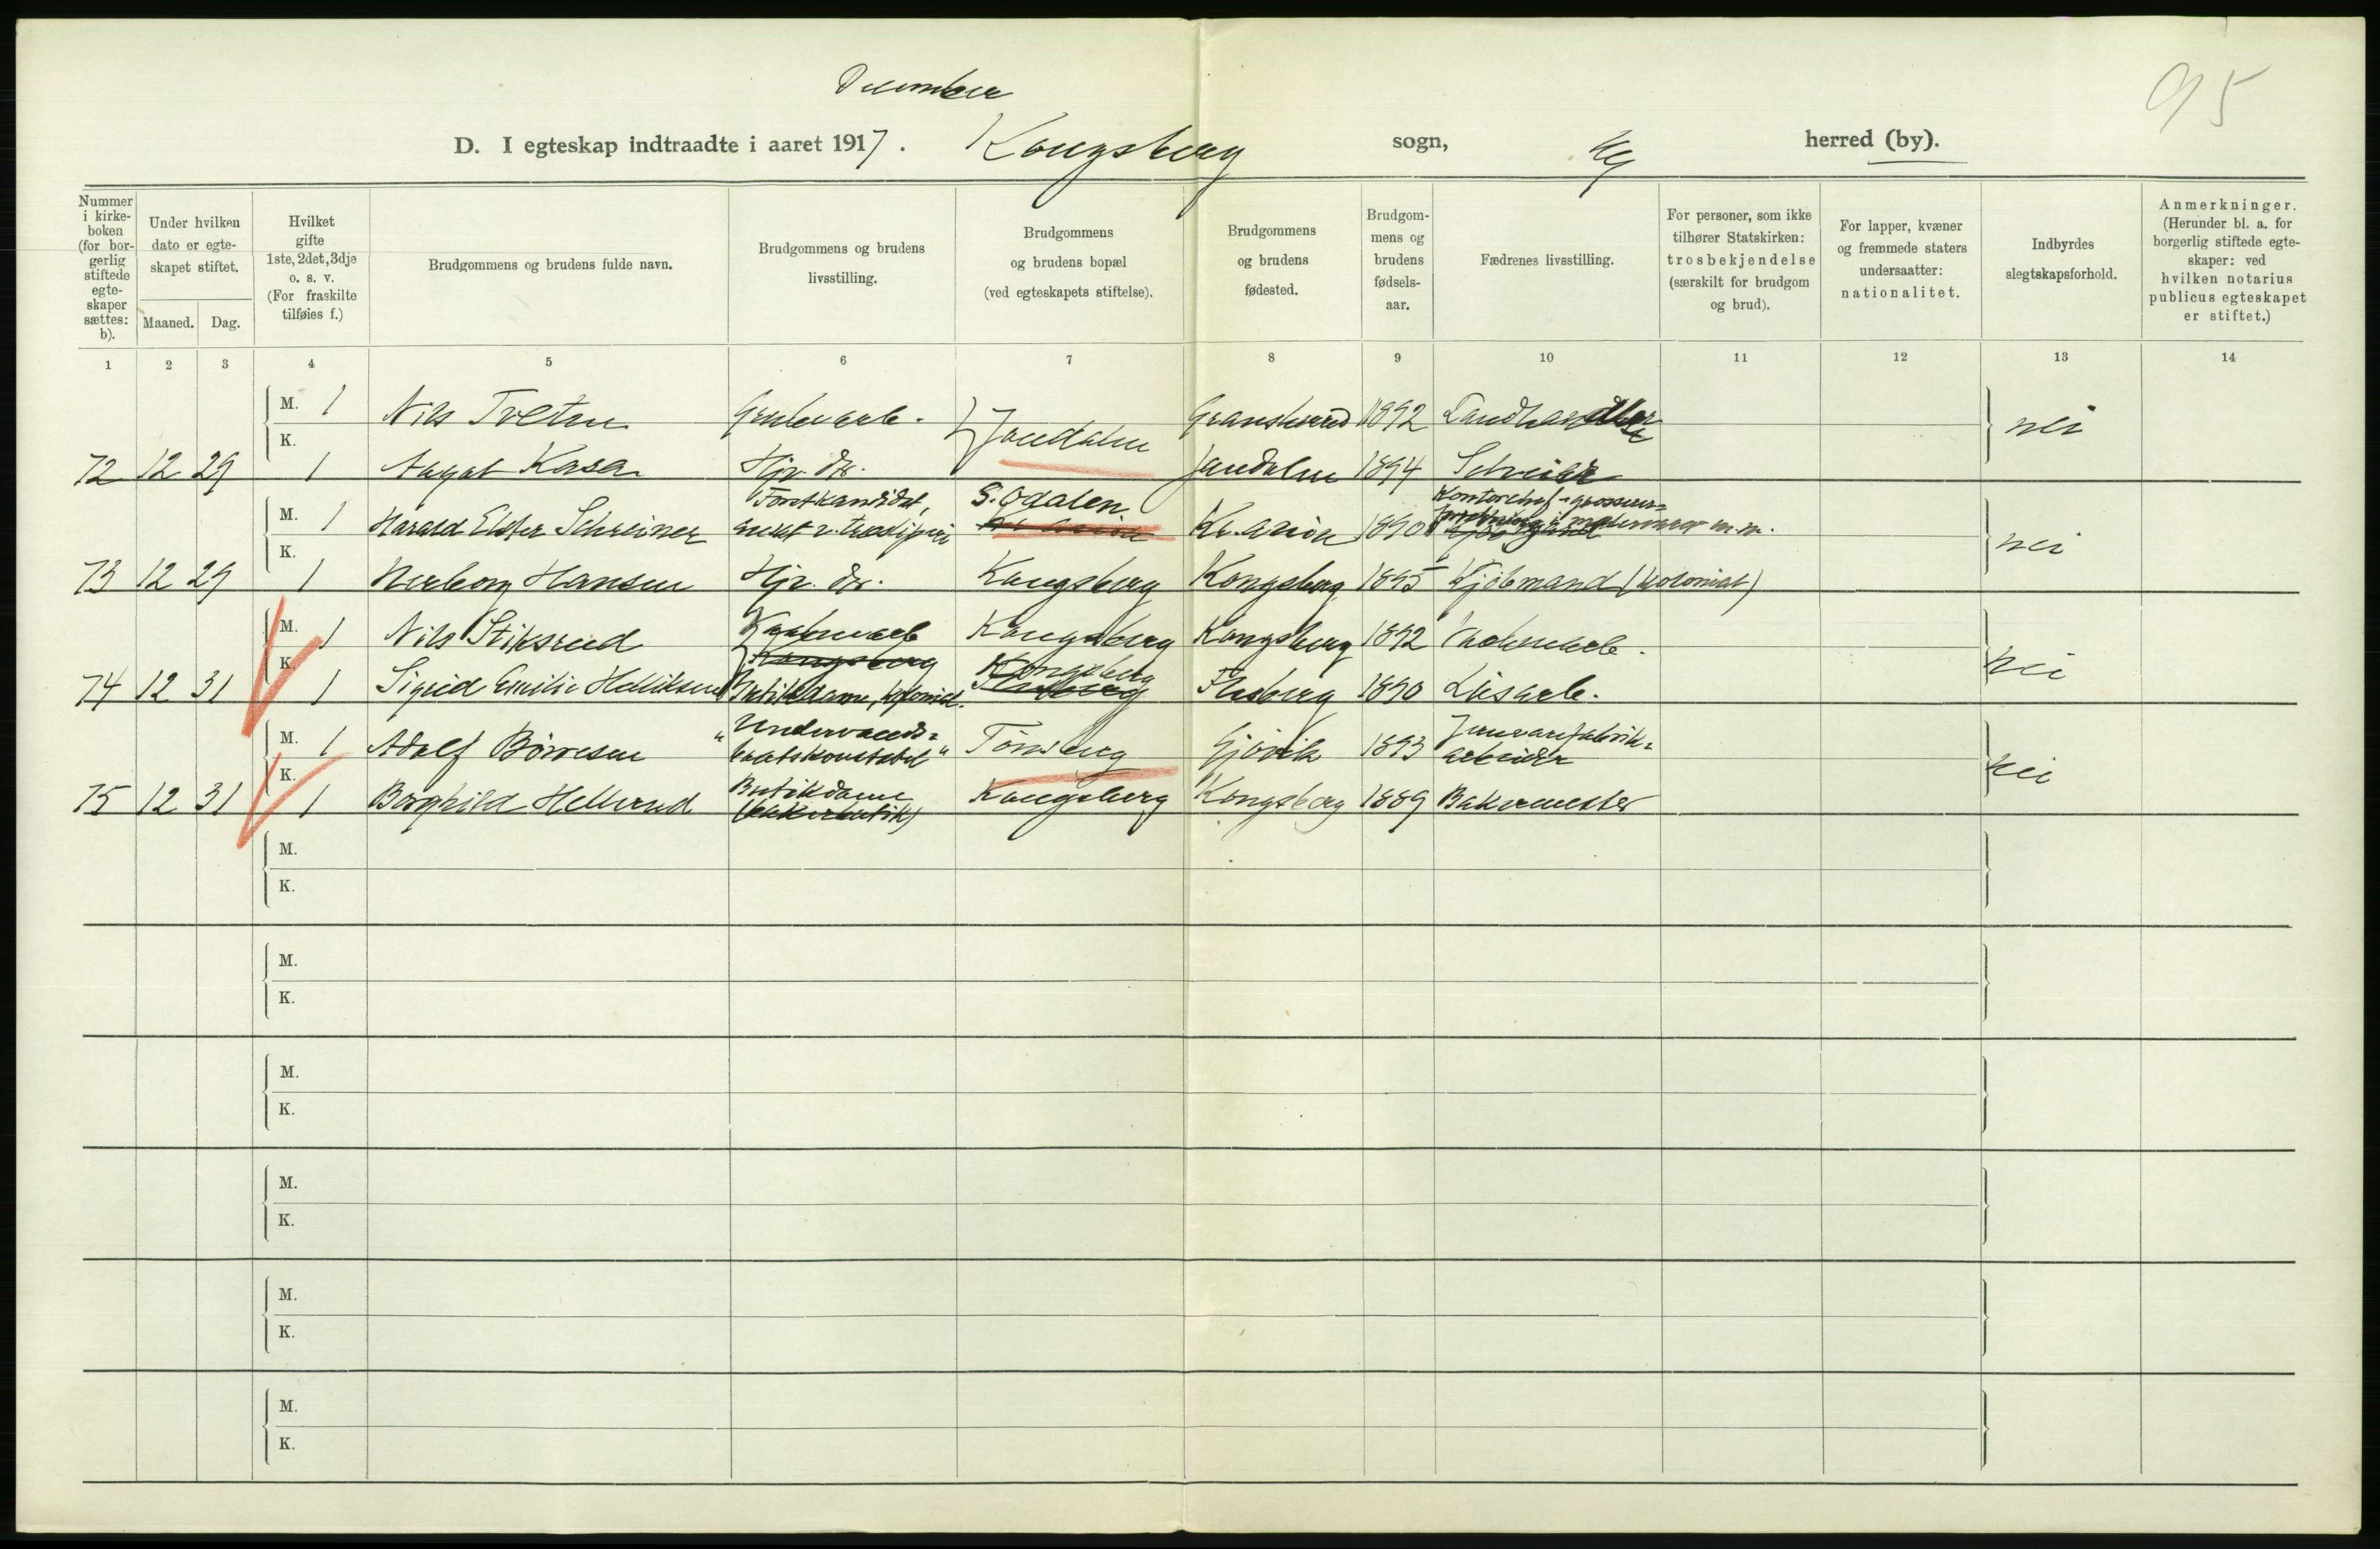 95
December
D. I egteskap indtraadte i aaret 1917. Kongsberg sogn, Kg herred (by).
Nummer i kirkeboken (for borgerlig stiftede egteskaper sættes: b).
Under hvilken dato er egteskapet stiftet.
Maaned. Dag.
Hvilket gifte 1ste, 2det, 3dje o. s. v. (For fraskilte tilføies f.)
Brudgommens og brudens fulde navn.
Brudgommens og brudens livsstilling.
Brudgommens og brudens bopæl (ved egteskapets stiftelse).
Brudgommens og brudens fødested.
Brudgommens og brudens fødselsaar.
Fædrenes livsstilling.
For personer, som ikke tilhører Statskirken: trosbekjendelse (særskilt for brudgom og brud).
For lapper, kvæner og fremmede staters undersaatter: nationalitet.
Indbyrdes slegtskapsforhold.
Anmerkninger. (Herunder bl. a. for borgerlig stiftede egteskaper: ved hvilken notarius publicus egteskapet er stiftet.)
1 2 3 4 5 6 7 8 9 10 11 12 13 14
M. 1 Nils Tveten Grubearb. } Jondalen Gransherred 1892 Landhandler nei
72 12 29 K. 1 Aagot Kasa Hjv. dtr. Jondalen 1894
M. 1 Harald Elster Schreiner Forstkandidat, ansat v. træsliperi S. Odalen Kr.ania Kr.ania 1890 Kontorchef i grosserer= forretning i malervarer m.m. nei
73 12 29 K. 1 Hansen Hjv. dtr. Kongsberg Kongsberg 1895 Kjøbmand (kolonial)
M. 1 Nils Stiksrud Kongsberg Kongsberg 1892 nei
74 12 31 K. 1 Sigrid Emilie Helliksen Kongsberg Butikdame, kolonial. Kongsberg Flesberg Flesberg 1890
M. 1 Adolf Børresen "Undervands= baatskonstabel" Tønsberg Gjøvik 1893 Jernvarefabrik= arbeider nei
75 12 31 K. 1 Borghild Hellerud Butikdame (bakerbutik) Kongsberg Kongsberg 1889 Bakermester
M.
K.
M.
K.
M.
K.
M.
K.
M.
K.
M.
K.